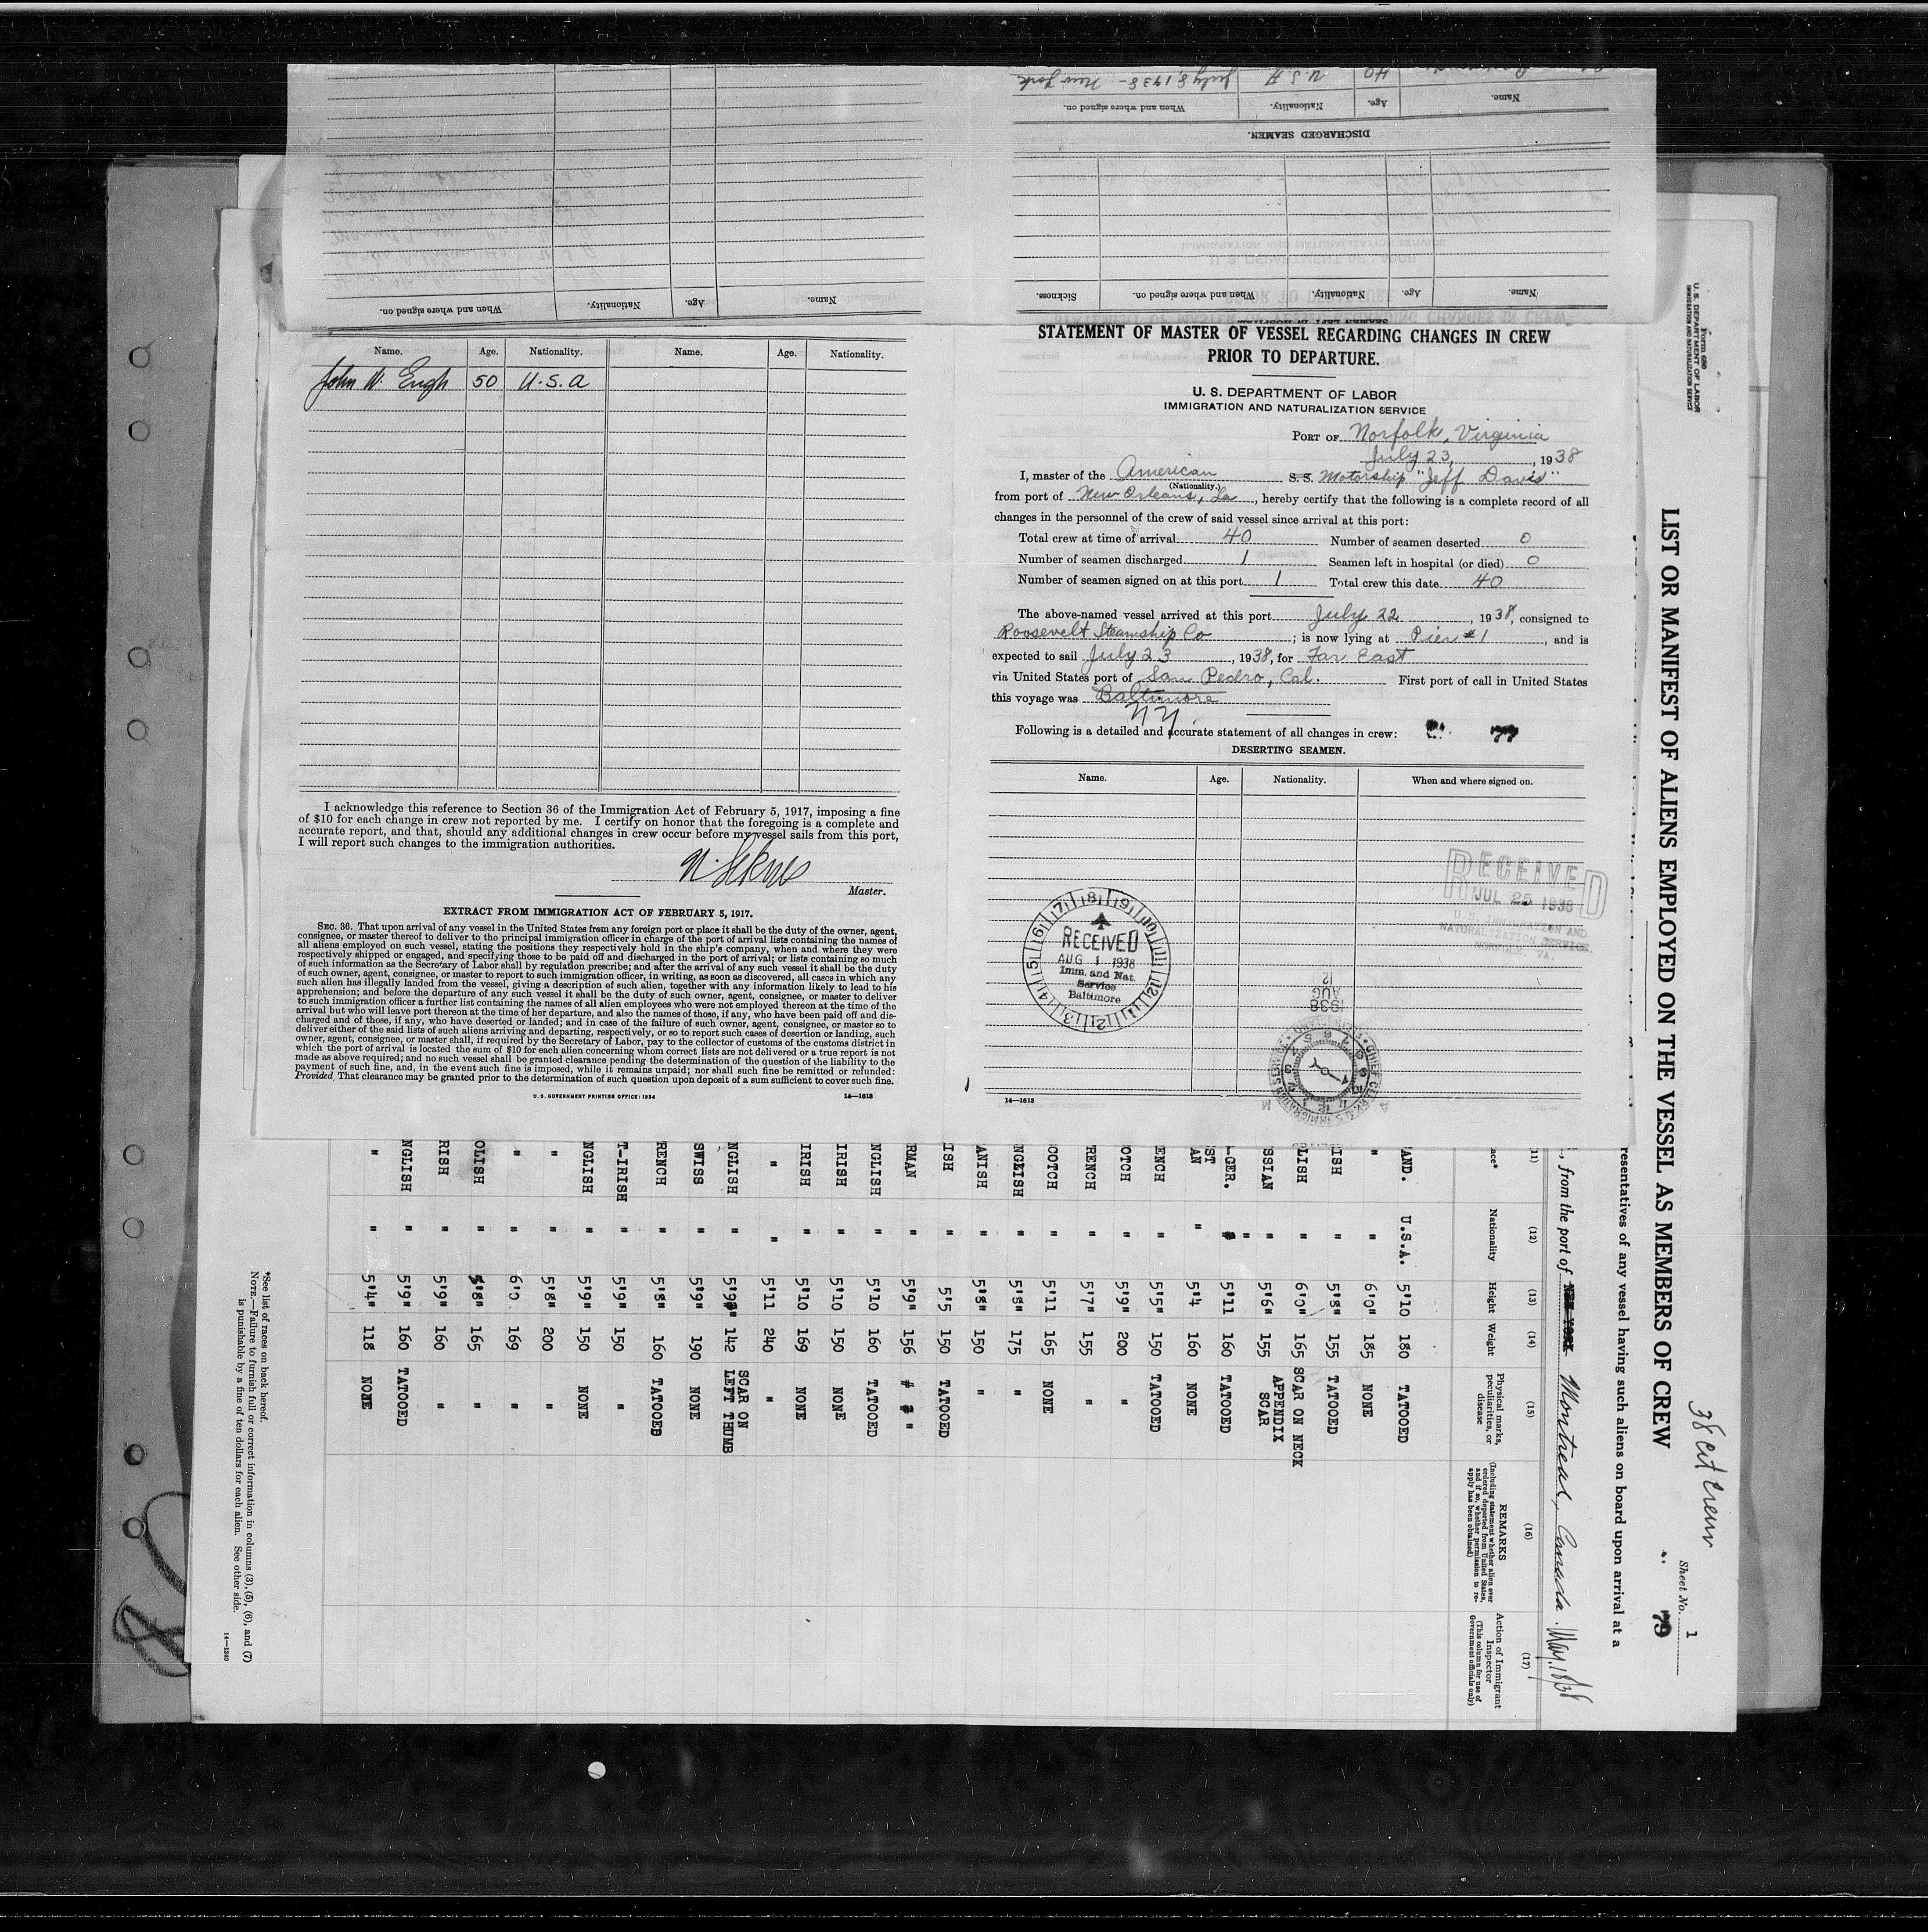 July 8, 1938 - New York
U.S.A
40
Name.
Age.
Nationality.
When and where signed on.
DISCHARGED SEAMEN.
Name.
Age.
Nationality.
When and where signed on.
Sickness.
Name.
Age.
Nationality.
When and where signed on.
Name. Age. Nationality. Name. Age. Nationality.
John W. Engh 50 U.S.A
I acknowledge this reference to Section 36 of the Immigration Act of February 5, 1917, imposing a fine
of $10 for each change in crew not reported by me. I certify on honor that the foregoing is a complete and
accurate report, and that, should any additional changes in crew occur before my vessel sails from this port,
I will report such changes to the immigration authorities.
Master.
EXTRACT FROM IMMIGRATION ACT OF FEBRUARY 5, 1917.
SEC. 36. That upon arrival of any vessel in the United States from any foreign port or place it shall be the duty of the owner, agent,
consignee, or master thereof to deliver to the principal immigration officer in charge of the port of arrival lists containing the names of
all aliens employed on such vessel, stating the positions they respectively hold in the ship's company, when and where they were
respectively shipped or engaged, and specifying those to be paid off and discharged in the port of arrival; or lists containing so much
of such information as the Secretary of Labor shall by regulation prescribe; and after the arrival of any such vessel it shall be the duty
of such owner, agent, consignee, or master to report to such immigration officer, in writing, as soon as discovered, all cases in which any
such alien has illegally landed from the vessel, giving a description of such alien, together with any information likely to lead to his
apprehension; and before the departure of any such vessel it shall be the duty of such owner, agent, consignee, or master to deliver
to such immigration officer a further list containing the names of all alien employees who were not employed thereon at the time of the
arrival but who will leave port thereon at the time of her departure, and also the names of those, if any, who have been paid off and dis-
charged and of those, if any, who have deserted or landed; and in case of the failure of such owner, agent, consignee, or master so to
deliver either of the said lists of such aliens arriving and departing, respectively, or so to report such cases of desertion or landing, such
owner, agent, consignee, or master shall, if required by the Secretary of Labor, pay to the collector of customs of the customs district in
which the port of arrival is located the sum of $10 for each alien concerning whom correct lists are not delivered or a true report is not
made as above required; and no such vessel shall be granted clearance pending the determination of the question of the liability to the
payment of such fine, and, in the event such fine is imposed, while it remains unpaid; nor shall such fine be remitted or refunded:
Provided, That clearance may be granted prior to the determination of such question upon deposit of a sum sufficient to cover such fine.
U. S. GOVERNMENT PRINTING OFFICE: 1934 14—1613
STATEMENT OF MASTER OF VESSEL REGARDING CHANGES IN CREW
PRIOR TO DEPARTURE.
U. S. DEPARTMENT OF LABOR
IMMIGRATION AND NATURALIZATION SERVICE
PORT OF Norfolk, Virginia
July 23, 1938
I, master of the American S. S. Motorship "Jeff Davis"
(Nationality.)
from port of New Orleans, La, hereby certify that the following is a complete record of all
changes in the personnel of the crew of said vessel since arrival at this port:
Total crew at time of arrival 40 Number of seamen deserted 0
Number of seamen discharged 1 Seamen left in hospital (or died) 0
Number of seamen signed on at this port 1 Total crew this date 40
The above-named vessel arrived at this port July 22, 1938, consigned to
Roosevelt Steamship Co; is now lying at Pier #1, and is
expected to sail July 23, 1938, for Far East
via United States port of San Pedro, Cal. First port of call in United States
this voyage was Baltimore
NY.
Following is a detailed and accurate statement of all changes in crew: 77
DESERTING SEAMEN.
Name. Age. Nationality. When and where signed on.
RECEIVED
JUL 25 1938
U. S. IMMIGRATION AND
NATURALIZATION SERVICE.
NORFOLK, VA.
RECEIVED
AUG 1 1938
Imm. and Nat.
Service
Baltimore
1938
AUG
12
14—1613
Form 680
U. S. DEPARTMENT OF LABOR
IMMIGRATION AND NATURALIZATION SERVICE
38 cit crew
Sheet No. 1
79
LIST OR MANIFEST OF ALIENS EMPLOYED ON THE VESSEL AS MEMBERS OF CREW
resentatives of any vessel having such aliens on board upon arrival at a
, from the port of Montreal, Canada. May 18/38
(11) (12) (13) (14) (15) (16) (17)
ace* Nationality Height Weight Physical marks, peculiarities, or disease REMARKS (Including statement whether alien ever ordered deported from United States, and if so, whether permission to re-apply has been obtained) Action of Immigrant Inspector (This column for use of Government officials only)
AND. U.S.A. 5'10 180 TATOOED
" " 6'0" 185 NONE
ISH " 5'8" 155 TATOOED
LISH " 6'0" 165 SCAR ON NECK
SSIAN " 5'6" 155 APPENDIX SCAR
-GER. " 5'11 160 TATOOED
ST AN " 5'4 160 NONE
ENCH " 5'5" 150 TATOOED
OTCH " 5'9" 200 "
RENCH " 5'7" 155 "
COTCH " 5'11 165 NONE
NGLISH " 5'8" 175 "
ANISH " 5'8" 150 "
ISH " 5'5 150 TATOOED
RMAN " 5'9" 156 "
NGLISH " 5'10 160 TATOOED
IRISH " 5'10 150 NONE
IRISH " 5'10 169 NONE
" " 5'11 240 "
NGLISH " 5'9" 142 SCAR ON LEFT THUMB
SWISS " 5'9" 190 NONE
RENCH " 5'8" 160 TATOOED
T-IRISH " 5'9" 150 "
NGLISH " 5'9" 150 NONE
" " 5'8" 200 "
" " 6'0 169 "
OLISH " 5'8" 165 "
RISH " 5'9" 160 "
NGLISH " 5'9" 160 TATOOED
" " 5'4" 118 NONE
*See list of races on back hereof.
NOTE.—Failure to furnish full or correct information in columns (3), (5), (6), and (7)
is punishable by a fine of ten dollars for each alien. See other side.
14—1240